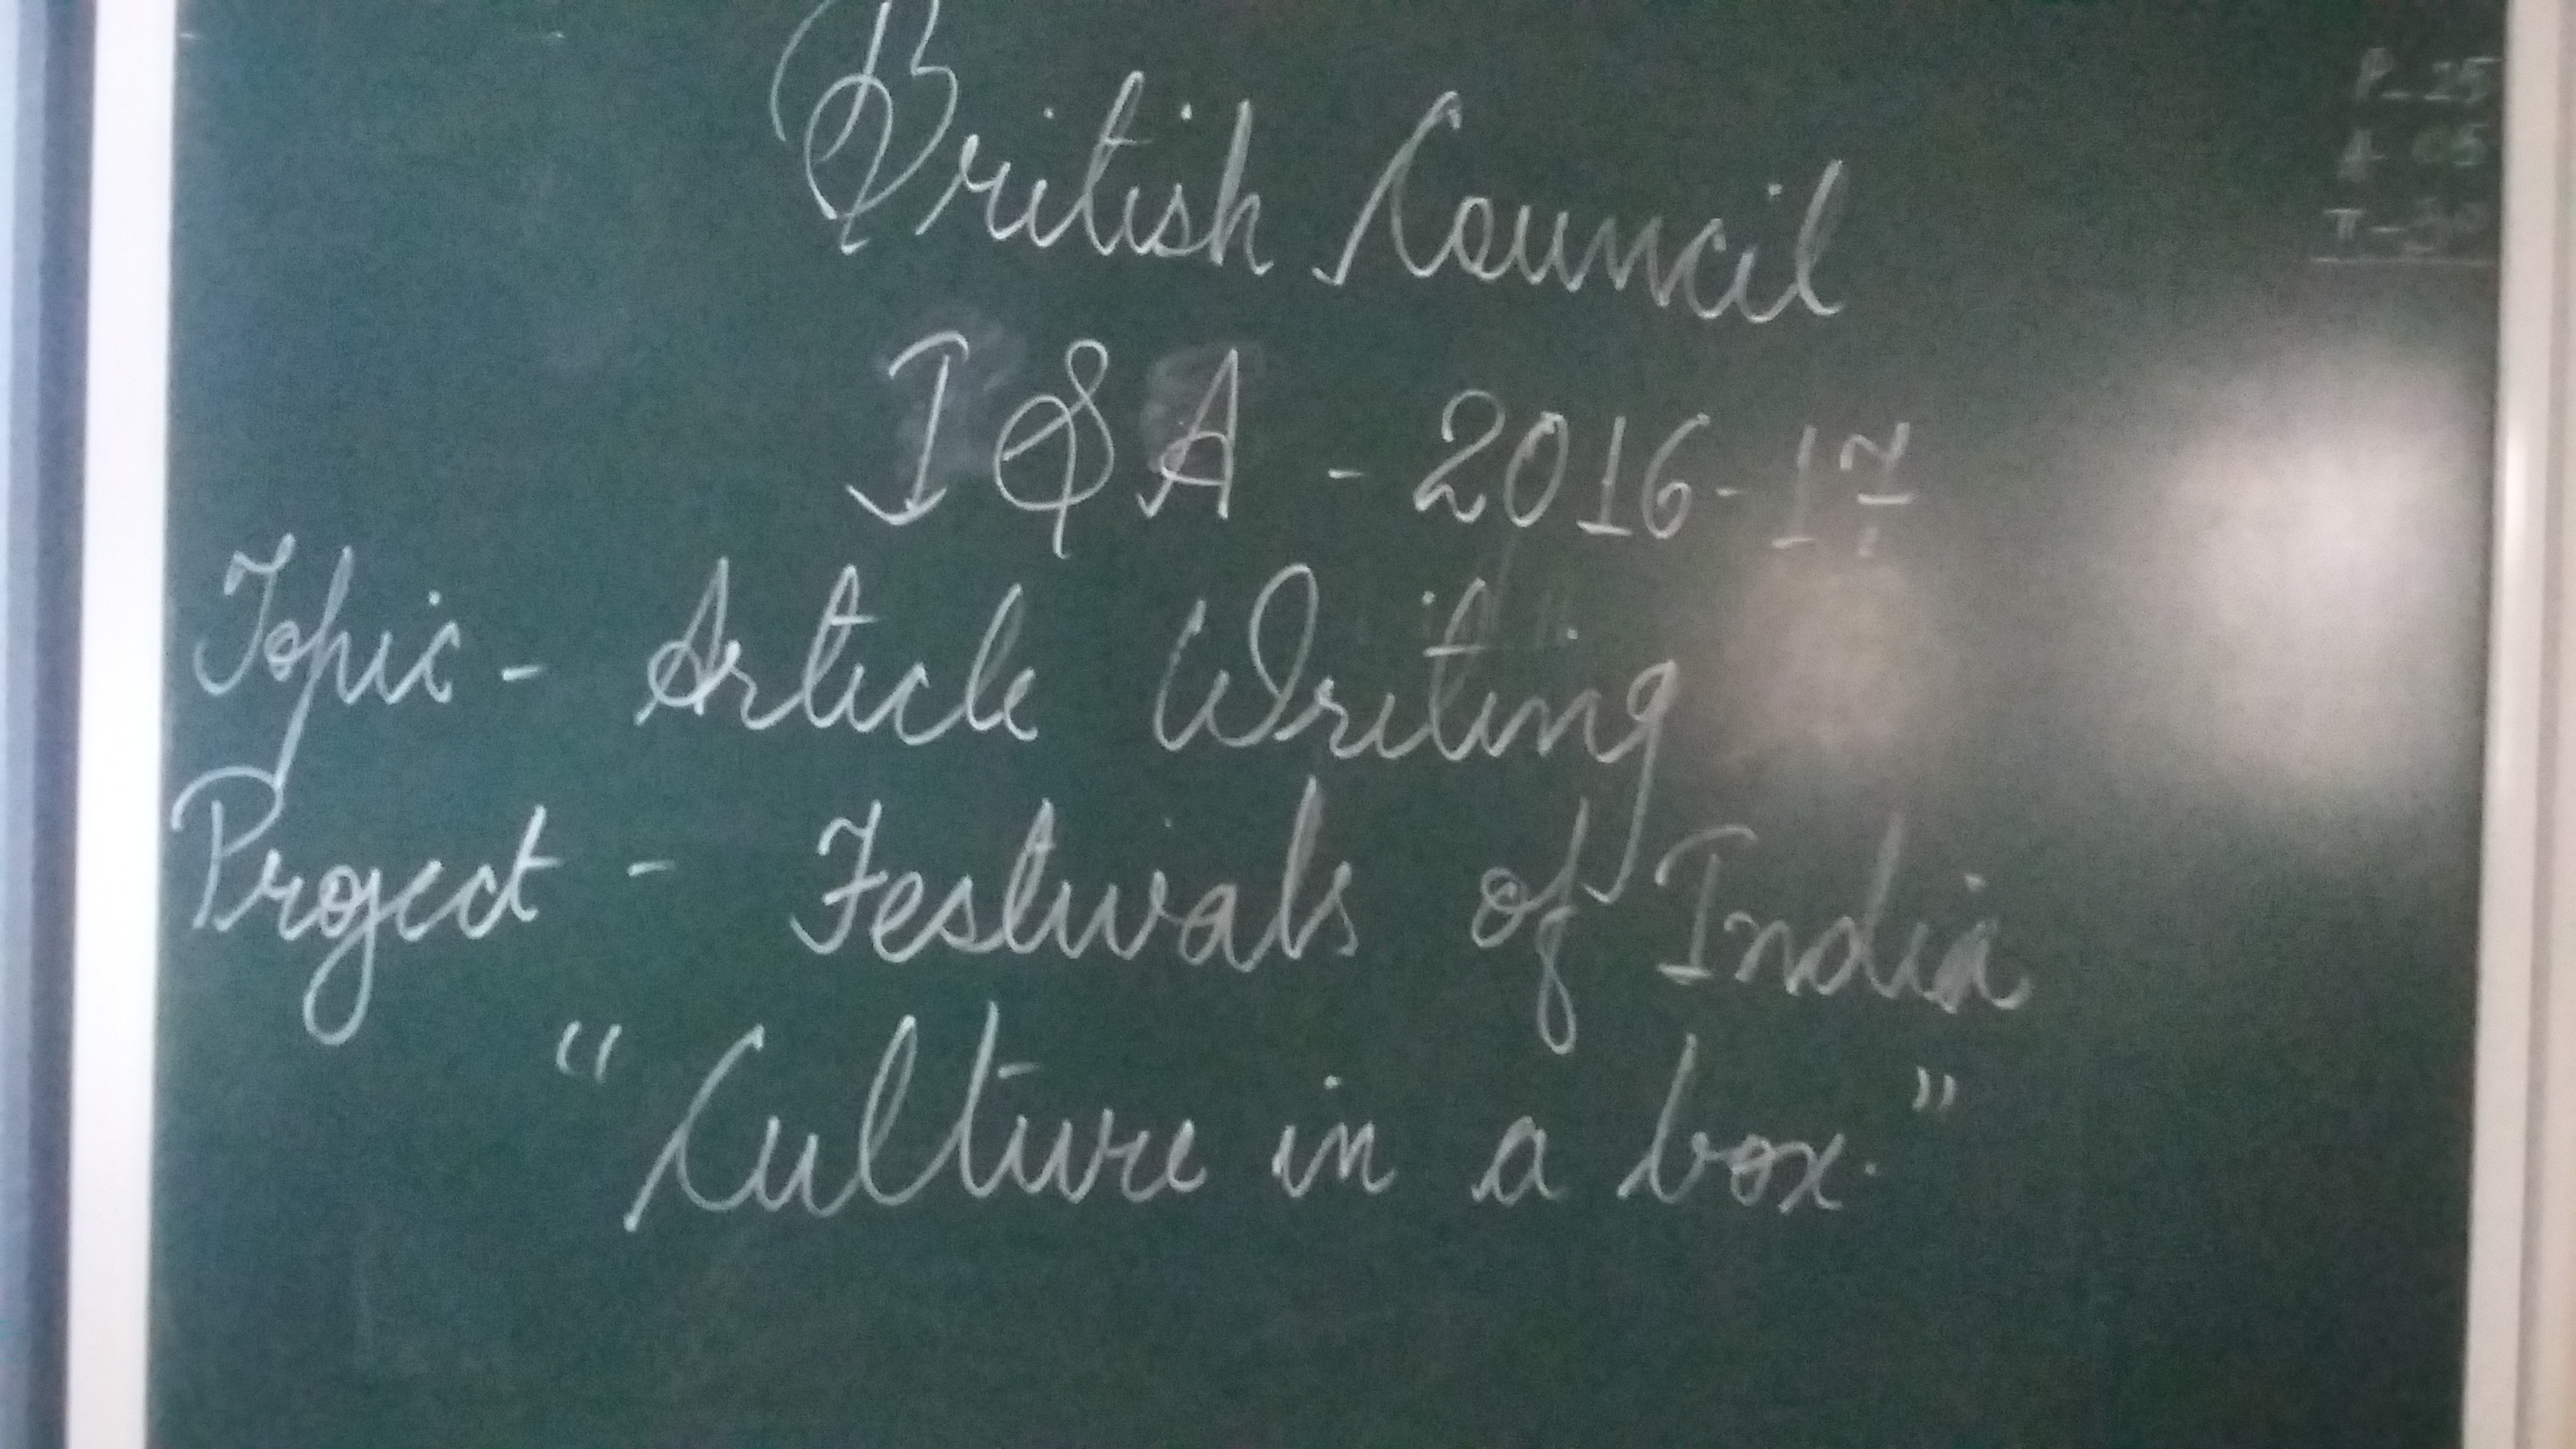 British Council
I & A - 2016-17
Topic - Article Writing
Project - Festivals of India
"Culture in a box."
P - 25
A 05
T - 30